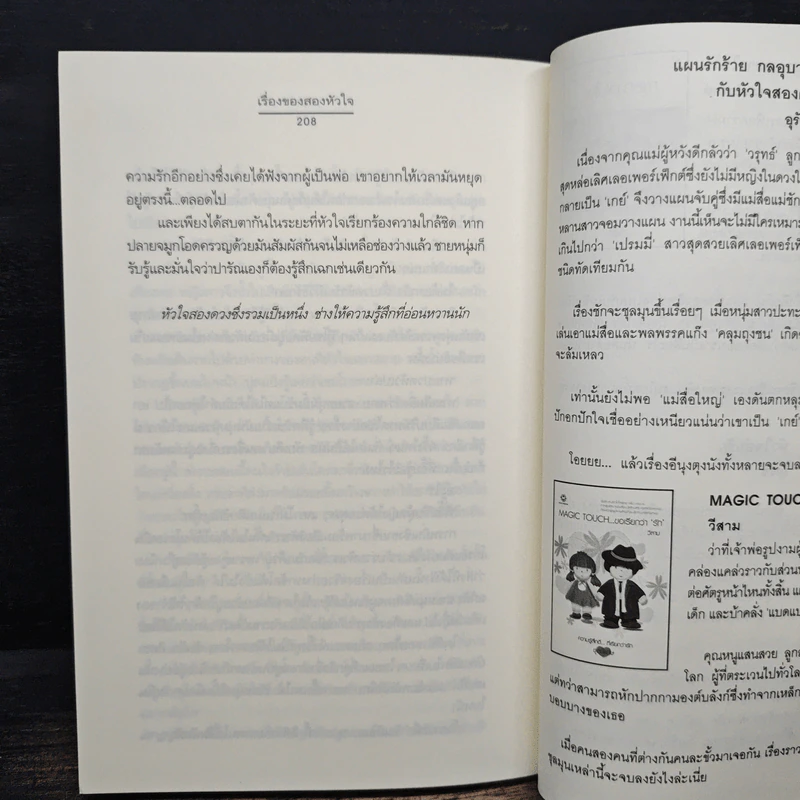 เรื่องของสองหัวใจ
208
ความรักอีกอย่างซึ่งเคยได้ฟังจากผู้เป็นพ่อ เขาอยากให้เวลามันหยุด
อยู่ตรงนี้...ตลอดไป
และเพียงได้สบตากันในระยะที่หัวใจเรียกร้องความใกล้ชิด หาก
ปลายจมูกโอดครวญด้วยมันสัมผัสกันจนไม่เหลือช่องว่างแล้ว ชายหนุ่มก็
รับรู้และมั่นใจว่าปารัณเองก็ต้องรู้สึกเฉกเช่นเดียวกัน
หัวใจสองดวงซึ่งรวมเป็นหนึ่ง ช่างให้ความรู้สึกที่อ่อนหวานนัก
แผนรักร้าย กลอุบา
กับหัวใจสอง
อุรั
เนื่องจากคุณแม่ผู้หวังดีกลัวว่า 'วรุทธ์' ลูก
สุดหล่อเลิศเลอเพอร์เฟ็กต์ซึ่งยังไม่มีหญิงในดวงใ
กลายเป็น 'เกย์' จึงวางแผนจับคู่ซึ่งมีแม่สื่อแม่ชัก
หลานสาวจอมวางแผน งานนี้เห็นจะไม่มีใครเหมาะ
เกินไปกว่า 'เปรมมี่' สาวสุดสวยเลิศเลอเพอร์เฟ็
ชนิดทัดเทียมกัน
เรื่องชักจะชุลมุนขึ้นเรื่อยๆ เมื่อหนุ่มสาวปะทะ
เล่นเอาแม่สื่อและพลพรรคแก๊ง 'คลุมถุงชน' เกิด
จะล้มเหลว
เท่านั้นยังไม่พอ 'แม่สื่อใหญ่' เองดันตกหลุม
ปักอกปักใจเชื่ออย่างเหนียวแน่นว่าเขาเป็น 'เกย์'
โอยยย... แล้วเรื่องอีนุงตุงนังทั้งหลายจะจบล
MAGIC TOUCH...ขอเรียกว่า 'รัก'
วีสาม
ความรู้สึกดี... ที่เรียกว่ารัก
MAGIC TOUC
วีสาม
ว่าที่เจ้าพ่อรูปงามผู้
คล่องแคล่วราวกับส่วนห
ต่อศัตรูหน้าไหนทั้งสิ้น แต่
เด็ก และบ้าคลั่ง 'แบดแบ
คุณหนูแสนสวย ลูกส
โลก ผู้ที่ตระเวนไปทั่วโล
แต่ทว่าสามารถหักปากกามองต์บลังก์ซึ่งทำจากเหล็ก
บอบบางของเธอ
เมื่อคนสองคนที่ต่างกันคนละขั้วมาเจอกัน เรื่องราว
ชุลมุนเหล่านี้จะจบลงยังไงล่ะเนี่ย